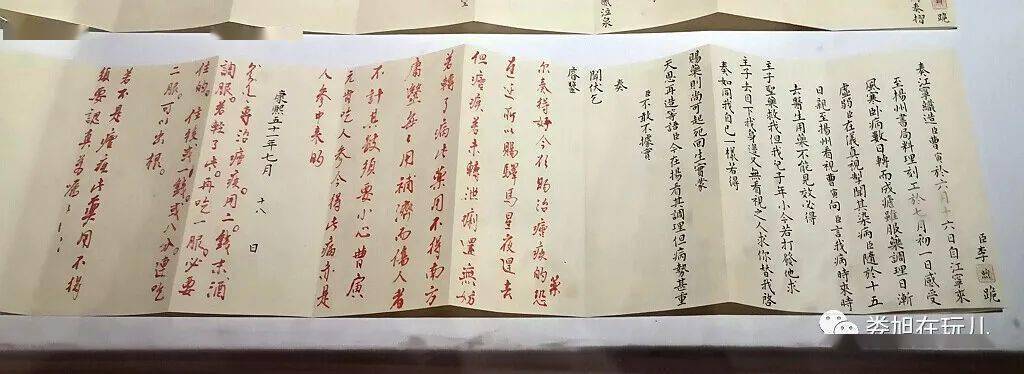 奏摺
跪
臣李煦跪
奏江寧織造臣曹寅於六月十六日自江寧來
至揚州書局料理刻工於七月初一日感受
風寒臥病數日轉而成瘧雖服藥調理日漸
虛弱臣在儀真視掣聞其染病臣隨於十五
日親至揚州看視曹寅向臣言我病時來時
去醫生用藥不能見效必得
主子聖藥救我但我兒子年小今若打發他求
主子去目下我身邊又無看視之人求你替我啟
奏如同我自己一樣若得
賜藥則尚可起死回生實蒙
天恩再造等語臣今在揚看其調理但病勢甚重
臣不敢不據實
奏
聞伏乞
睿鑒
尔奏得好今欲賜治瘧疾的藥恐
遲延所以賜驛馬星夜趕去
但瘧疾若未轉泄痢還無妨
若轉了病此藥用不得南方
庸醫每每用補濟而傷人者
不計其數須要小心曹寅
元肯吃人參今得此病亦是
人參中來的
康熙五十一年七月 十八 日
專治瘧疾。用二錢末酒
調服。若輕了些。再吃一服。必要
住的。住後或一錢。或八分。連吃
二服。可以出根。
若不是瘧疾此藥用不得
須要認真萬囑
娄旭在玩儿